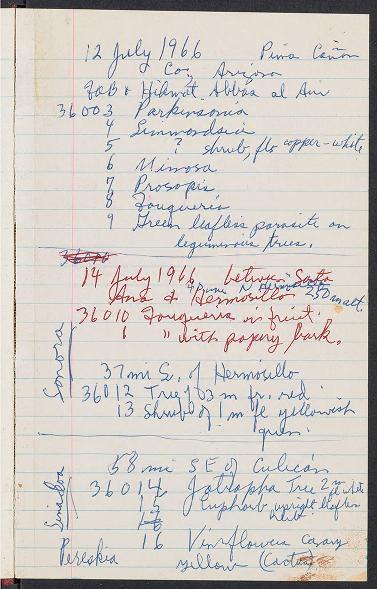 12 July 1966 Pima Cañon
Co., Arizona
& Hikmat Abbas al Ani
36003 Parkinsonia
4 Simmondsia
5 ? shrub, flo copper-white
6 Mimosa
7 Prosopis
8 Fouqueria
9 Green leafless parasite on
leguminous trees.
14 July 1966 between Santa
Ana & Hermosillo 250 m alt.
36010 Fouqueria in fruit.
1 " with papery bark.
Sonora
37 mi S. of Hermosillo
36012 Tree of 3 m fr. red
13 shrub of 1 m fl yellowish
green.
Sinaloa
58 mi SE of Culicán
36014 Jatropha Tree 2 m fl white
15 Euphorb upright leafless
herb
16 Vin flowers canary
Pereskia yellow (Cactus)